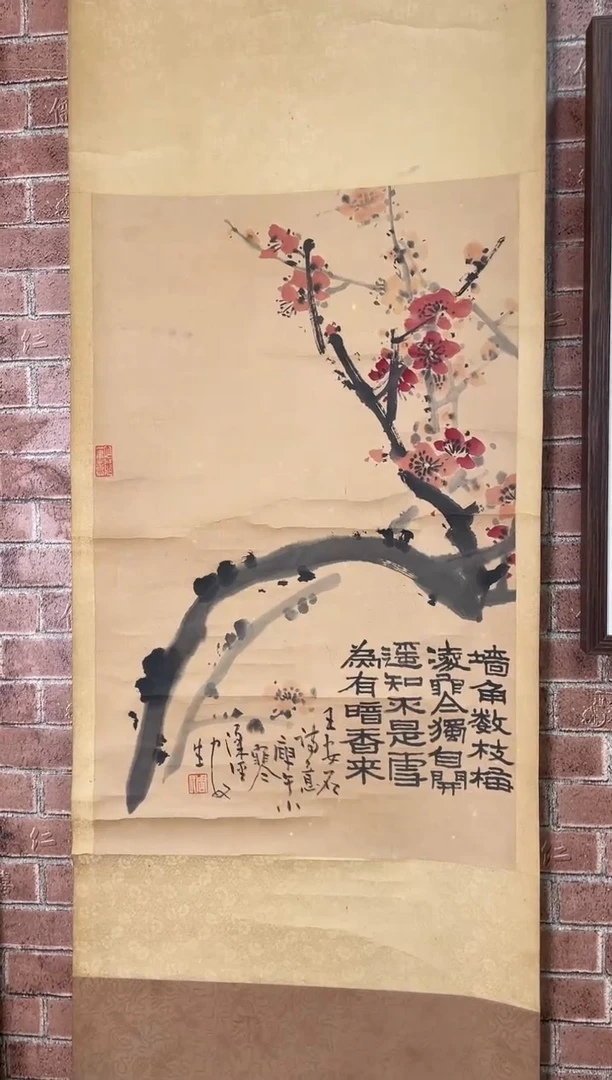 墙角数枝梅
凌寒今獨自開
遥知不是雪
為有暗香来
王安石
诗意
庚午小
寒